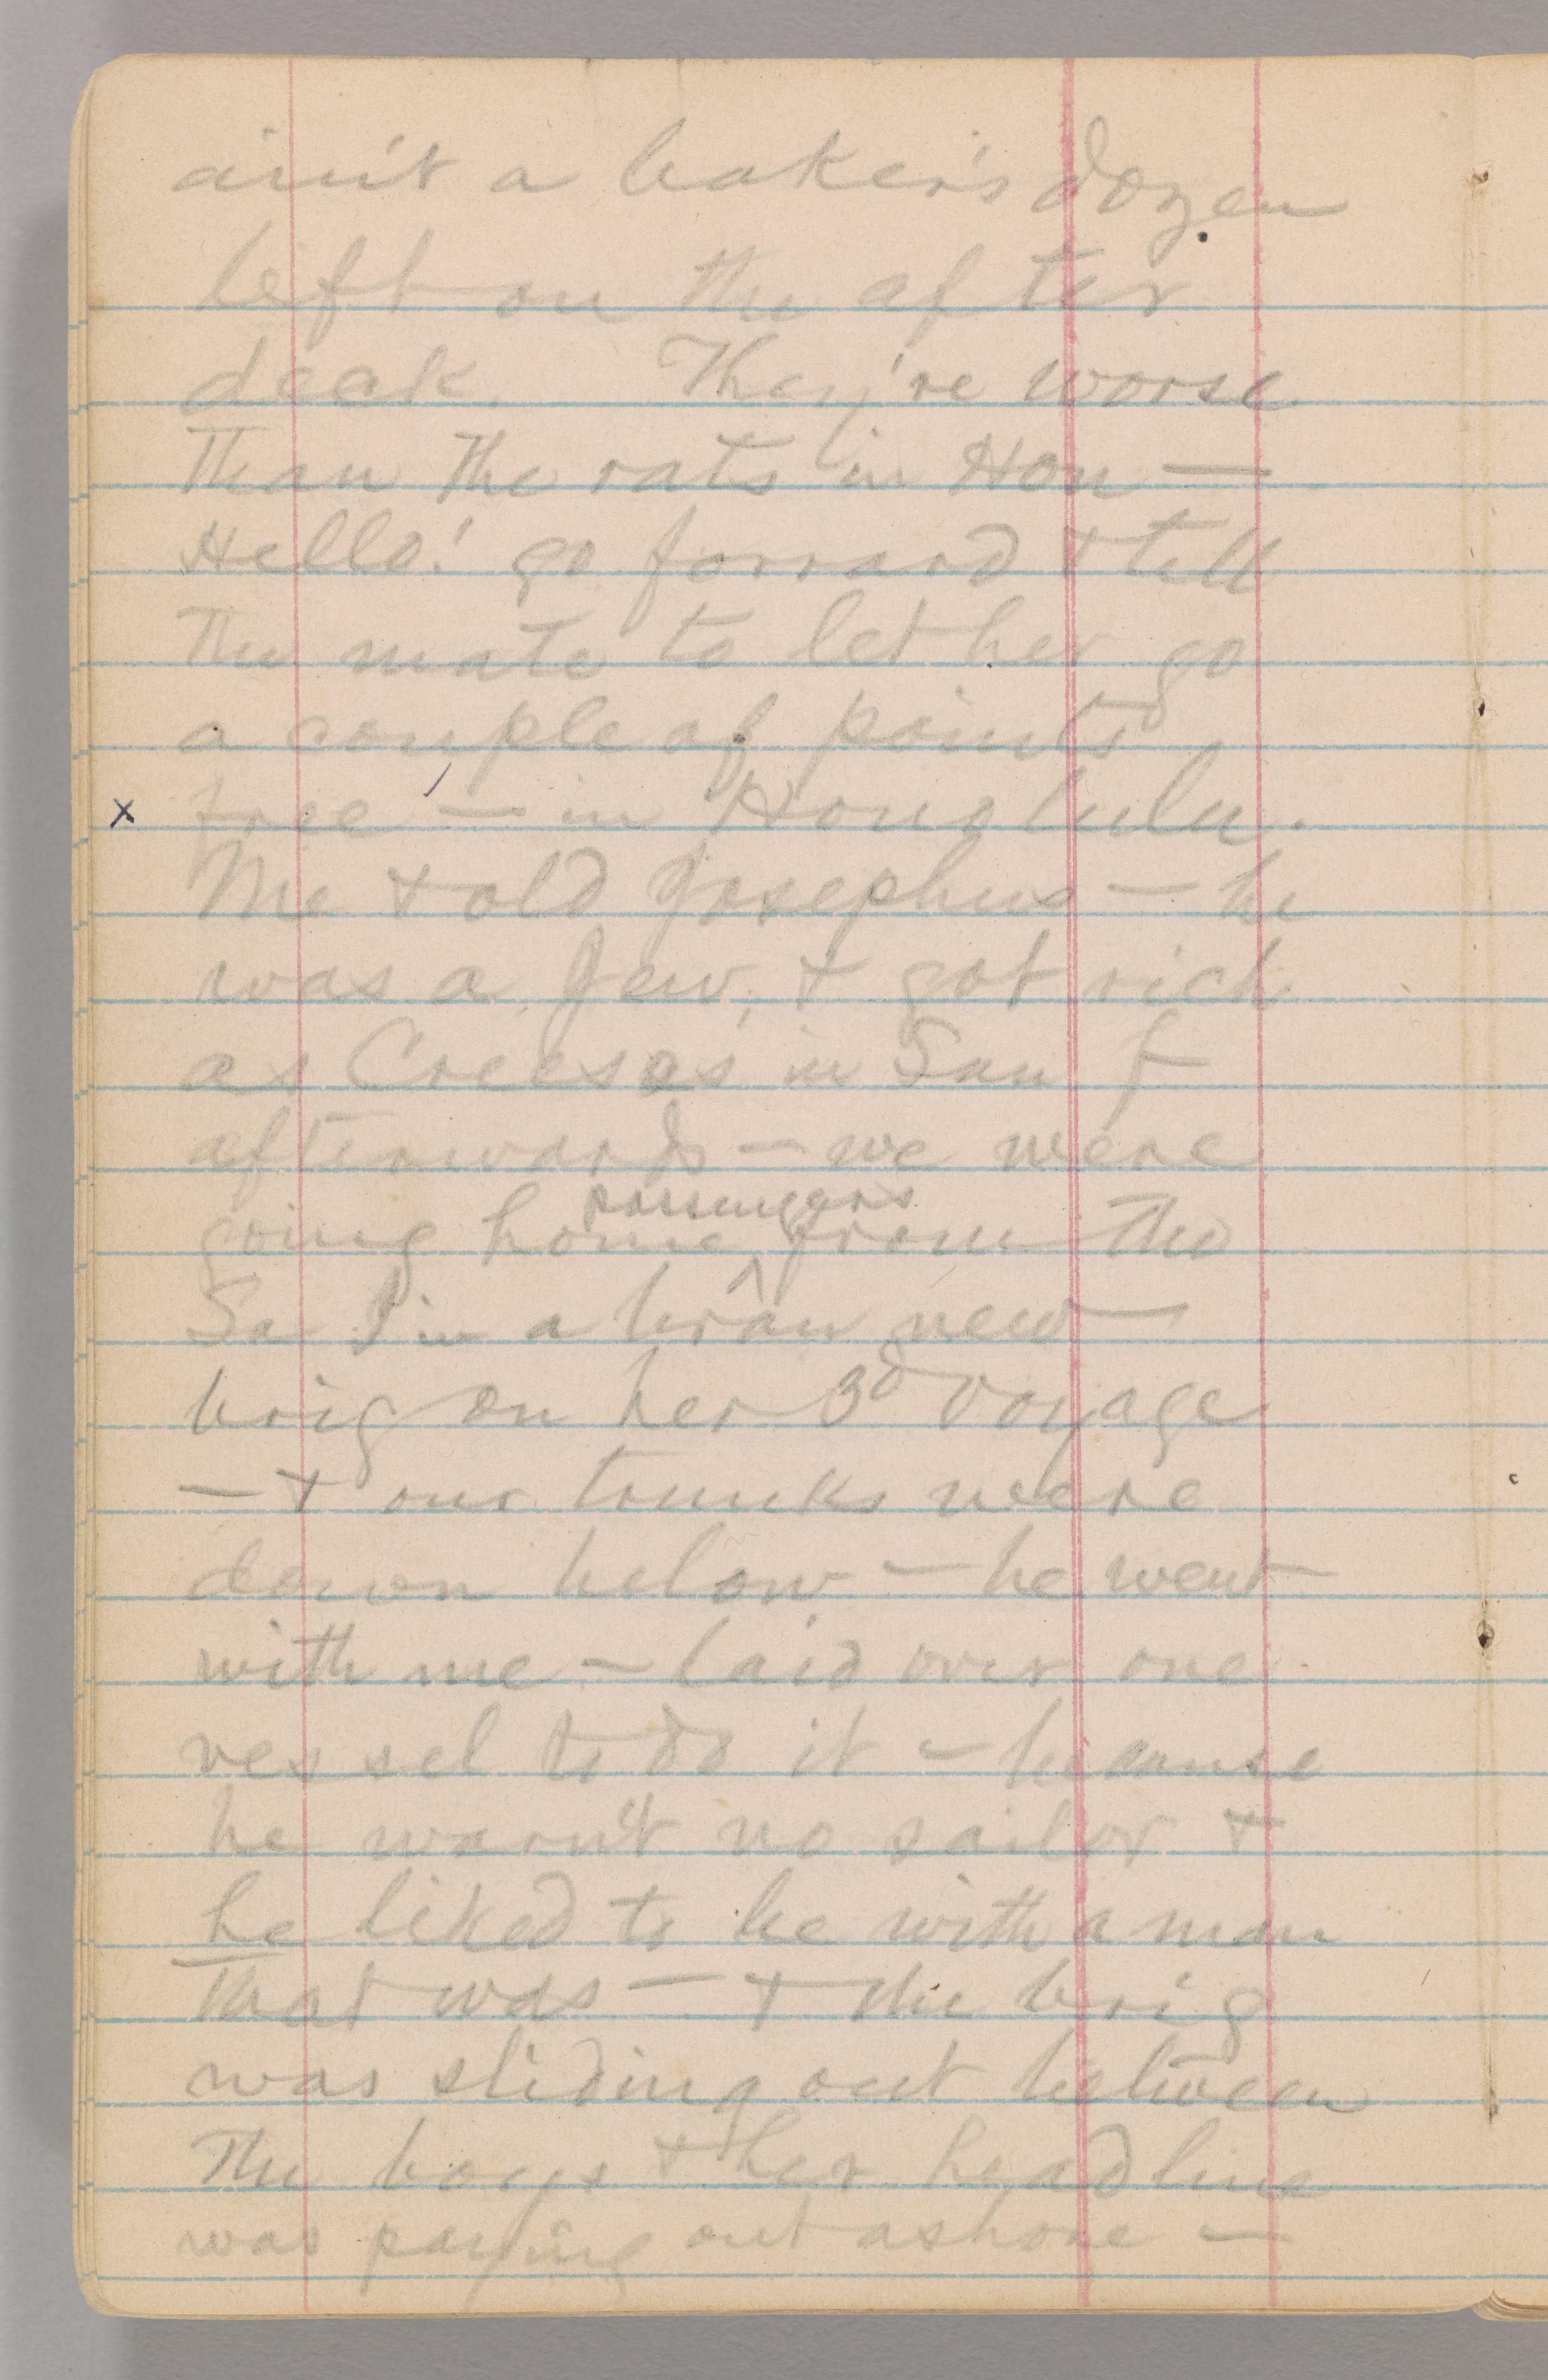 ain't a baker's dozen
left on the after
deck. They're worse
than the rats in Hon —
Hello! go forrard & tell
the mate to let her go
a couple of points
x free — in Honolulu.
Me & old Josephus — he
was a Jew, & got rich
as Creesos in San F
afterwards — we were
going home ^passengers from the
Sa I in a bran new
brig on her 3d voyage
— & our trunks were
down below — he went
with me — laid over one
vessel to do it — because
he warn't no sailor &
he liked to be with a man
that was — & the brig
was sliding out between
the boys & her headline
was paying out ashore —